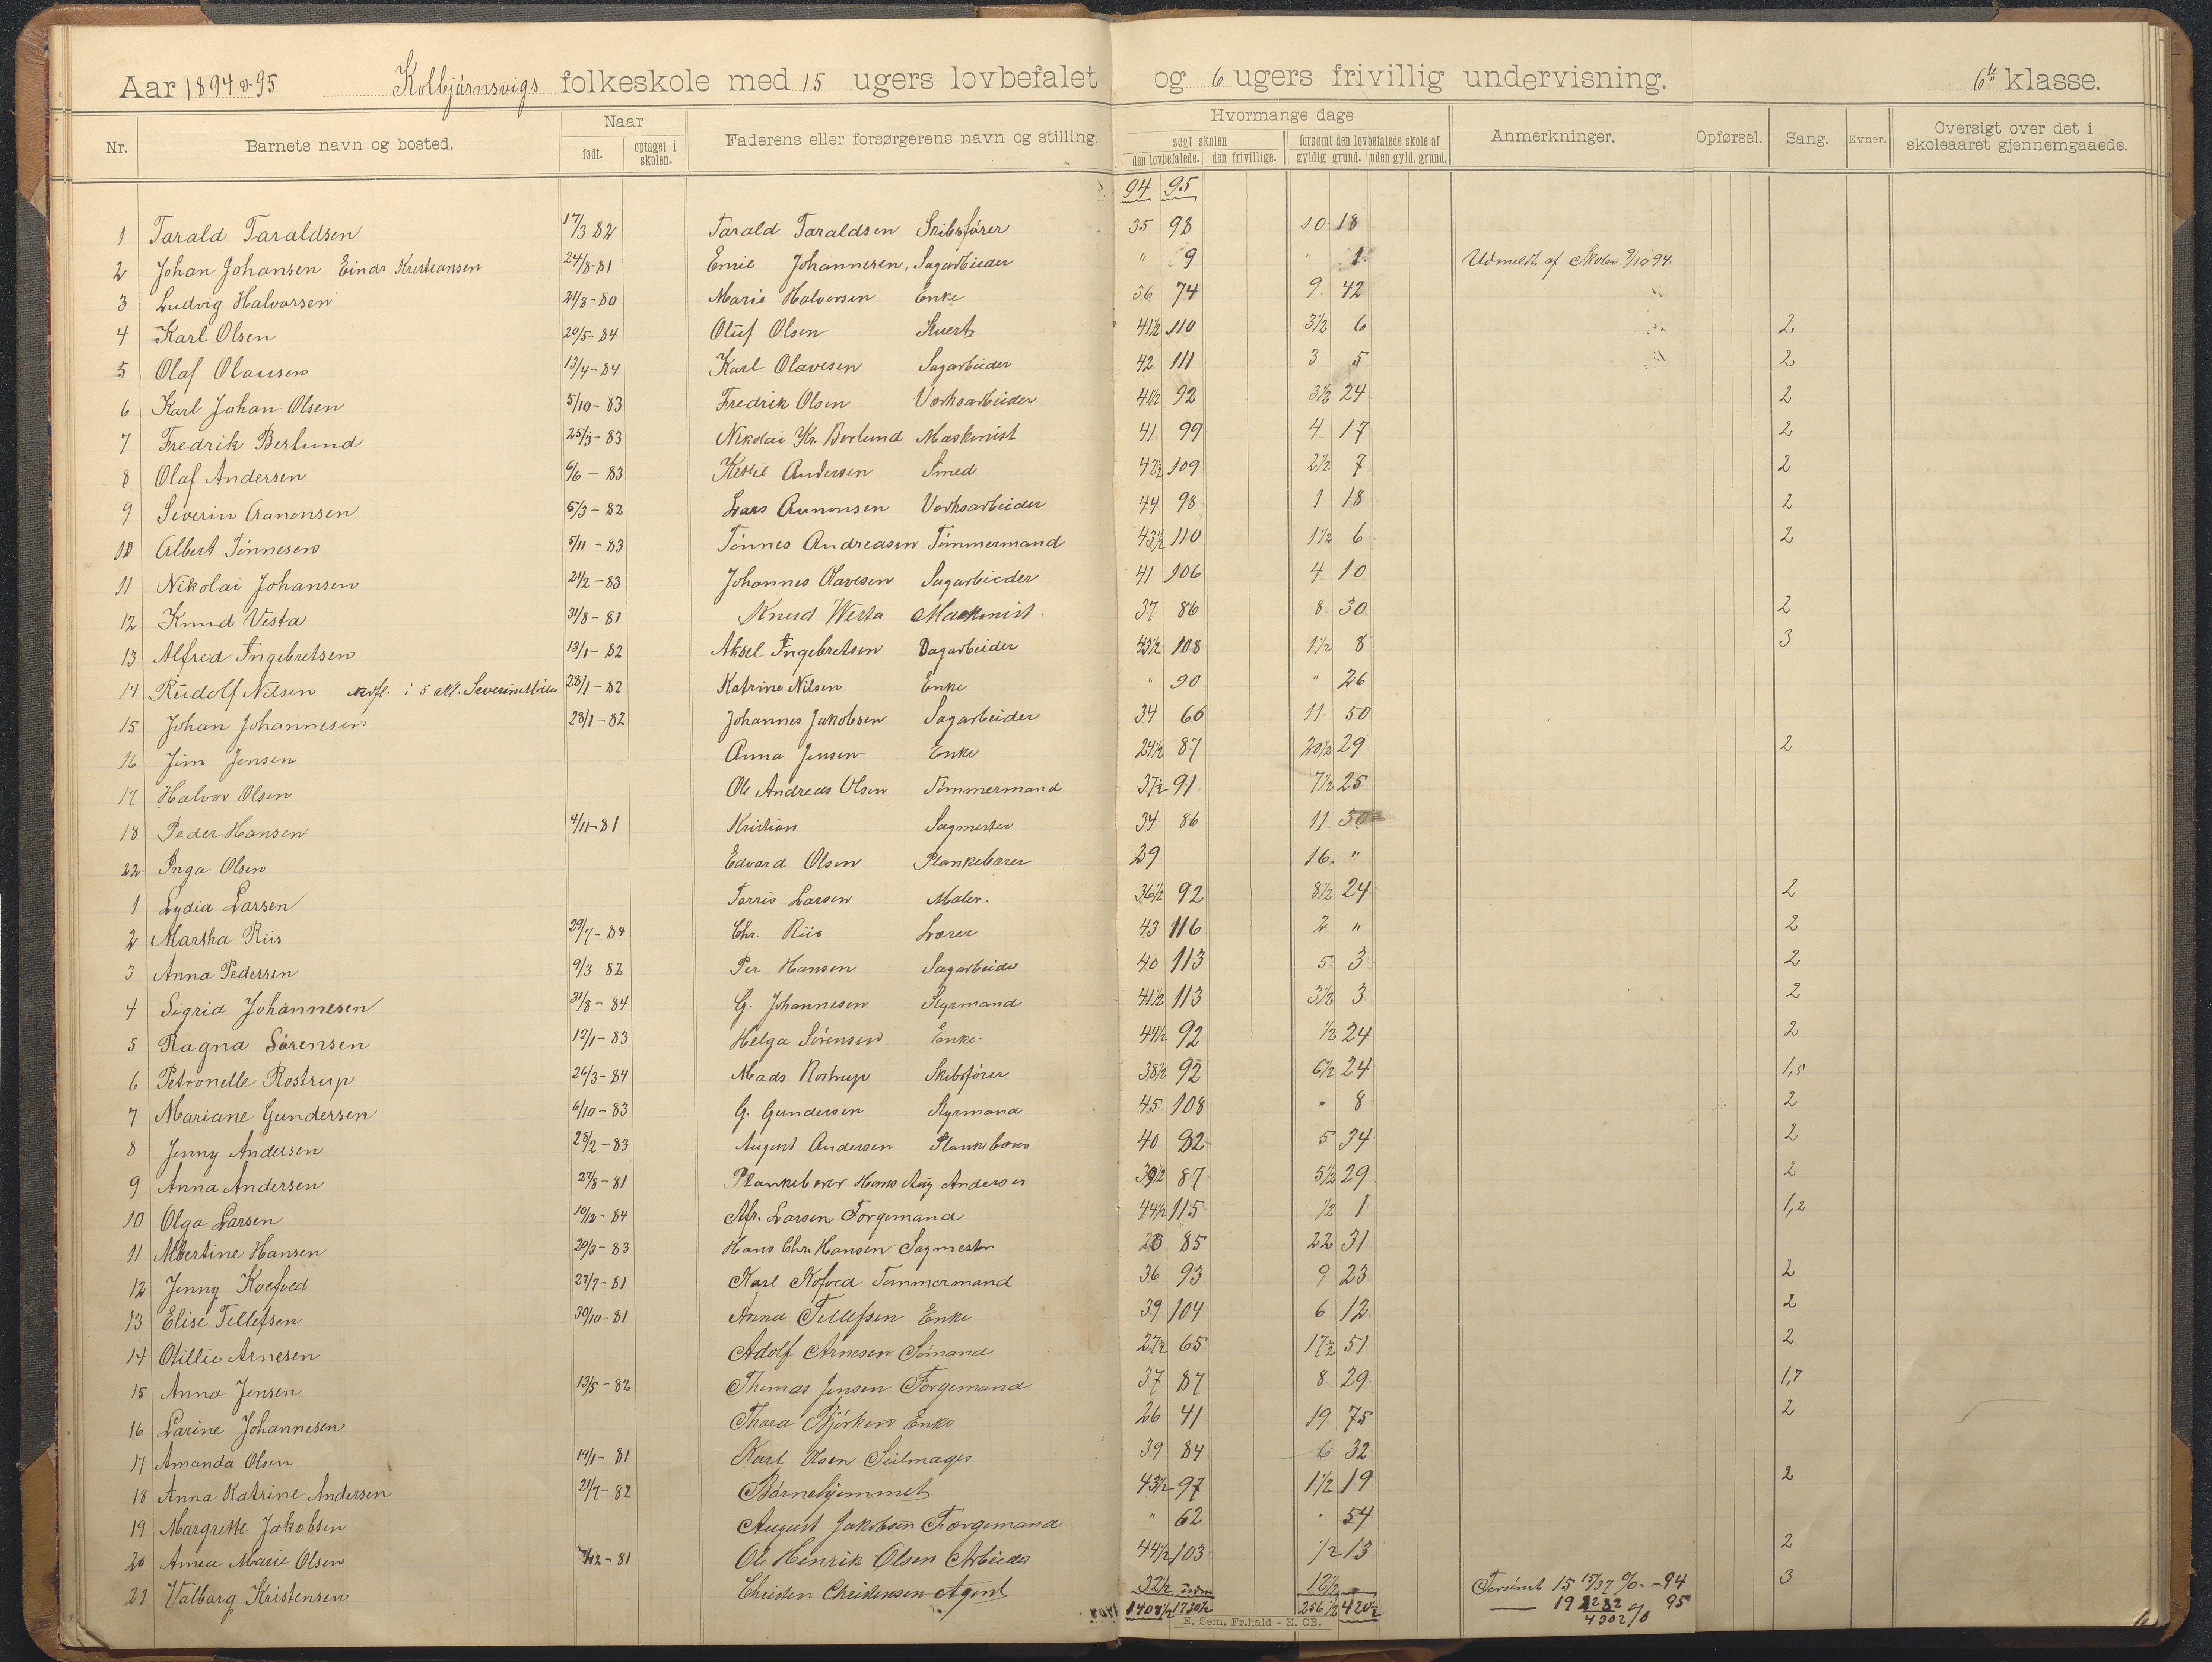 Aar 1894 & 95 Kolbjørnsvigs folkeskole med 15 ugers lovbefalet og 6 ugers frivillig undervisning. 6te klasse.
Nr. Barnets navn og bosted. Naar født. optaget i skolen. Faderens eller forsørgerens navn og stilling. Hvormange dage søgt skolen den lovbefalede. den frivillige. forsømt den lovbefalede skole af gyldig grund. uden gyld. grund. Anmerkninger. Opførsel. Sang. Evner. Oversigt over det i skoleaaret gjennemgaaede.
94 95
1 Tarald Taraldsen 17/3 82 Tarald Taraldsen Skibsfører 35 98 10 18
2 Johan Johansen Einar Kristiansen 24/8-81 Emil Johannesen, Sagarbieder " 9 " 1 Udmeldt af Skolen 9/10 94.
3 Ludvig Halvorsen 21/8-80 Marie Halvorsen Enke 36 74 9 42
4 Karl Olsen 20/5-84 Oluf Olsen Stuert 41 1/2 110 3 1/2 6 2
5 Olaf Olausen 13/4-84 Karl Olavesen Sagarbeider 42 111 3 5 2
6 Karl Johan Olsen 5/10-83 Fredrik Olsen Verksarbeider 41 1/2 92 3 1/2 24 2
7 Fredrik Berlund 25/3-83 Nikolai Kr. Berlund Maskinist 41 99 4 17 2
8 Olaf Andersen 6/6-83 Kittil Andersen Smed 42 1/2 109 2 1/2 7 2
9 Severin Aanonsen 5/3-82 Lars Aanonsen Verksarbeider 44 98 1 18 2
10 Albert Tønnesen 5/11-83 Tønnes Andreasen Tømmermand 43 1/2 110 1 1/2 6 2
11 Nikolai Johansen 21/2-83 Johannes Olavesen Sagarbieder 41 106 4 10
12 Knud Vesta 31/8-81 Knud Westa Maskinist 37 86 8 30 2
13 Alfred Ingebretsen 13/1-82 Aksel Ingebretsen Dagarbeider 43 1/2 108 1 1/2 8 3
14 Rudolf Nilsen i 5 Kl. 28/1-82 Katrine Nilsen Enke " 90 " 26
15 Johan Johannesen 28/1-82 Johannes Jakobsen Sagarbeider 34 66 11 50
16 Jim Jensen Anna Jensen Enke 24 1/2 87 20 1/2 29 2
17 Halvor Olsen Ole Andreas Olsen Tømmermand 37 1/2 91 7 1/2 25
18 Peder Hansen 4/11-81 Kristian Sagmester 34 86 11 30
22 Inga Olsen Edvard Olsen Plankebærer 29 16 "
1 Lydia Larsen Tarris Larsen Maler. 36 1/2 92 8 1/2 24 2
2 Martha Riis 29/7-84 Chr. Riis Lærer 43 116 2 " 2
3 Anna Pedersen 9/3 82 Per Hansen Sagarbeider 40 113 5 3 2
4 Sigrid Johannesen 31/8-84 G. Johannesen Styrmand 41 1/2 113 3 1/2 3 2
5 Ragna Sørensen 12/1-83 Helga Sørensen Enke. 44 1/2 92 1/2 24 2
6 Petronelle Rostrup 26/3-84 Mads Rostrup Skibsfører 38 1/2 92 6 1/2 24 1,5
7 Mariane Gundersen 6/10-83 G. Gundersen Styrmand 45 108 " 8 2
8 Jenny Andersen 28/2-83 August Andersen Plankebærer 40 82 5 34 2
9 Anna Andersen 27/8-81 Plankebærer Hans Aug Andersen 39 1/2 87 5 1/2 29 2
10 Olga Larsen 10/12-84 Afr. Larsen Forgemand 44 1/2 115 1/2 1 1,2
11 Albertine Hansen 20/3-83 Hans Chr. Hansen Sagmester 23 85 22 31
12 Jenny Koefoed 27/7-81 Karl Kofoed Tømmermand 36 93 9 23 2
13 Elise Tellefsen 30/10-81 Anna Tellefsen Enke 39 104 6 12 2
14 Otillie Arnesen Adolf Arnesen Sømand 27 1/2 65 17 1/2 51 2
15 Anna Jensen 13/5-82 Thomas Jensen Forgemand 37 87 8 29 1,7
16 Larine Johannesen Thara Bjørken Enke 26 41 19 75 2
17 Amanda Olsen 19/1-81 Karl Olsen Seilmager 39 84 6 32
18 Anna Katrine Andersen 21/7-82 Børnehjemmet 43 1/2 97 1 1/2 19 2
19 Margrethe Jakobsen August Jakobsen Forgemand " 62 " 54
20 Anna Marie Olsen -81 Ole Henrik Olsen Arbieder 44 1/2 103 1/2 13 2
21 Valborg Kristensen Christen Christensen Agent 32 1/2 12 1/2 Forsømt 15 15/37 % -94 3
1408 1/2 1730 1/2 256 1/2 420 1/2 19 95
E. Sem, Fr.hald - E. CB.